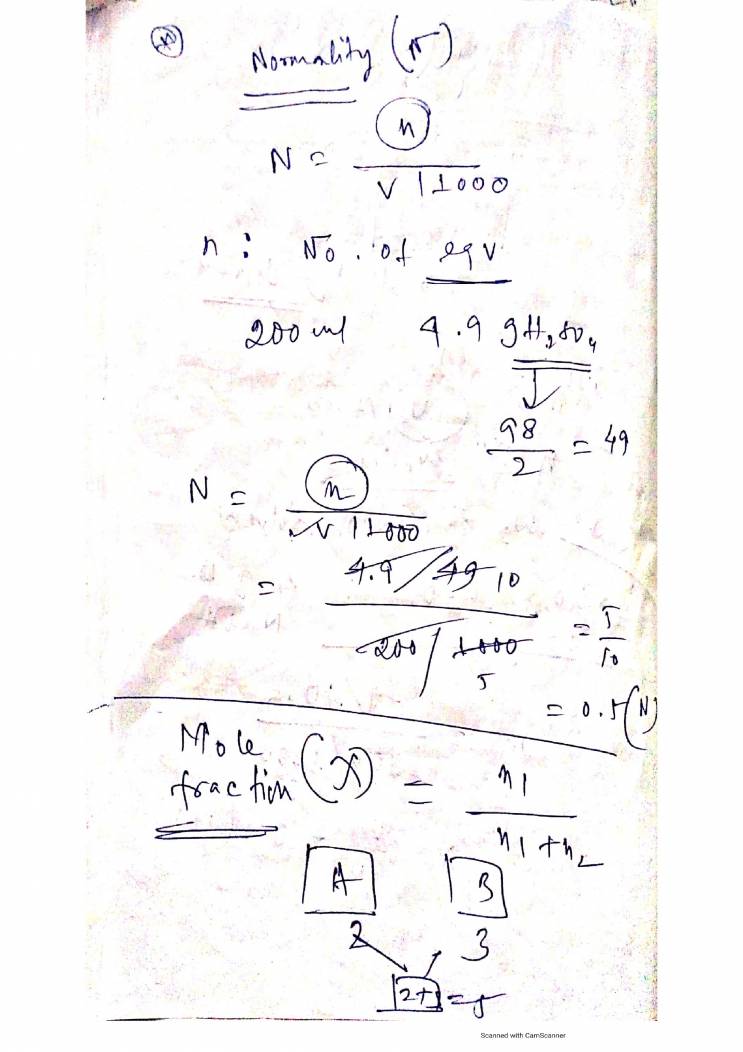 Normality (N)
N = n
V | 1000
n : No. of eqv.
200 ml 4.9 g H₂SO₄
98
2
= 49
N = n
V | 1000
= 4.9 / 49 10
200 / 1000
5
= 5
10
= 0.5 (N)
Mole
fraction (X) = n1
n1 + n2
A B
2 3
= 5
Scanned with CamScanner